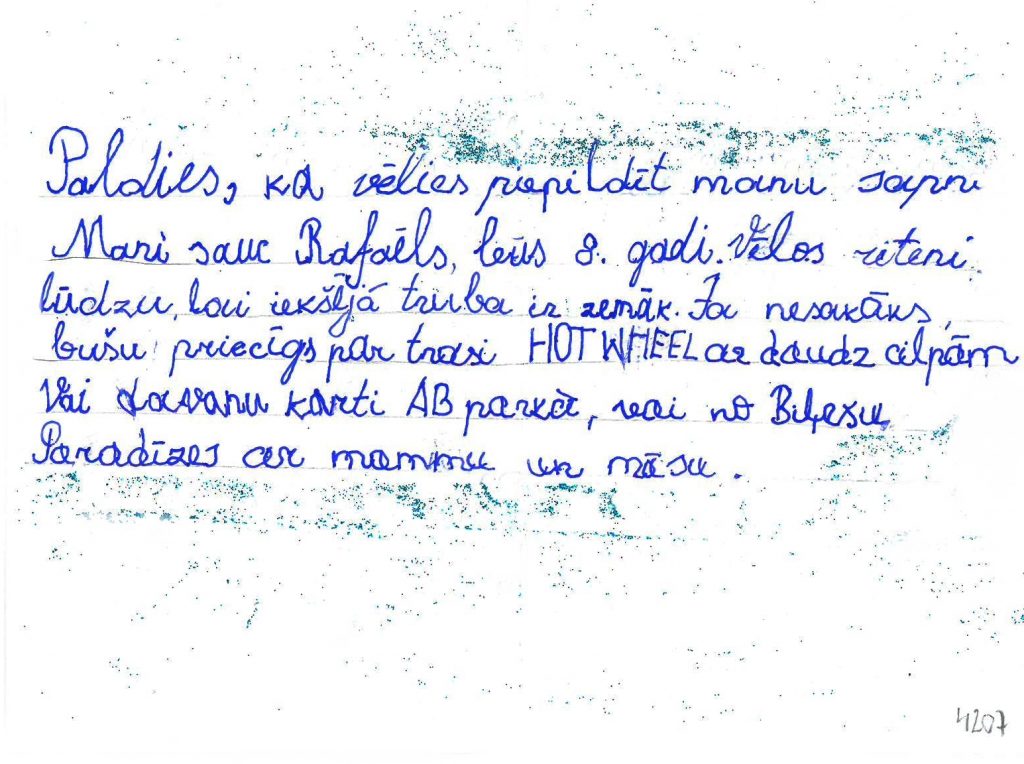 Paldies, ka vēlies piepildīt manu sapni
Mani sauc Rafaēls, būs 8. gadi. Vēlos riteni.
lūdzu, lai iekšējā truba ir zemāk. Ja nesanāks,
būšu priecīgs par trasi HOT WHEEL ar daudz cilpām
Vai davanu karti AB parkā, vai no Biķesu
Paradīzes ar mammu un māsu.
4207